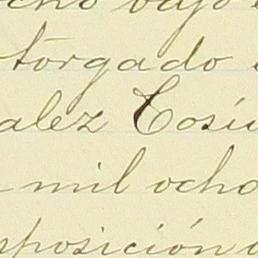 cho bajo
torgado
alez Cosí
mil ocho
sposición